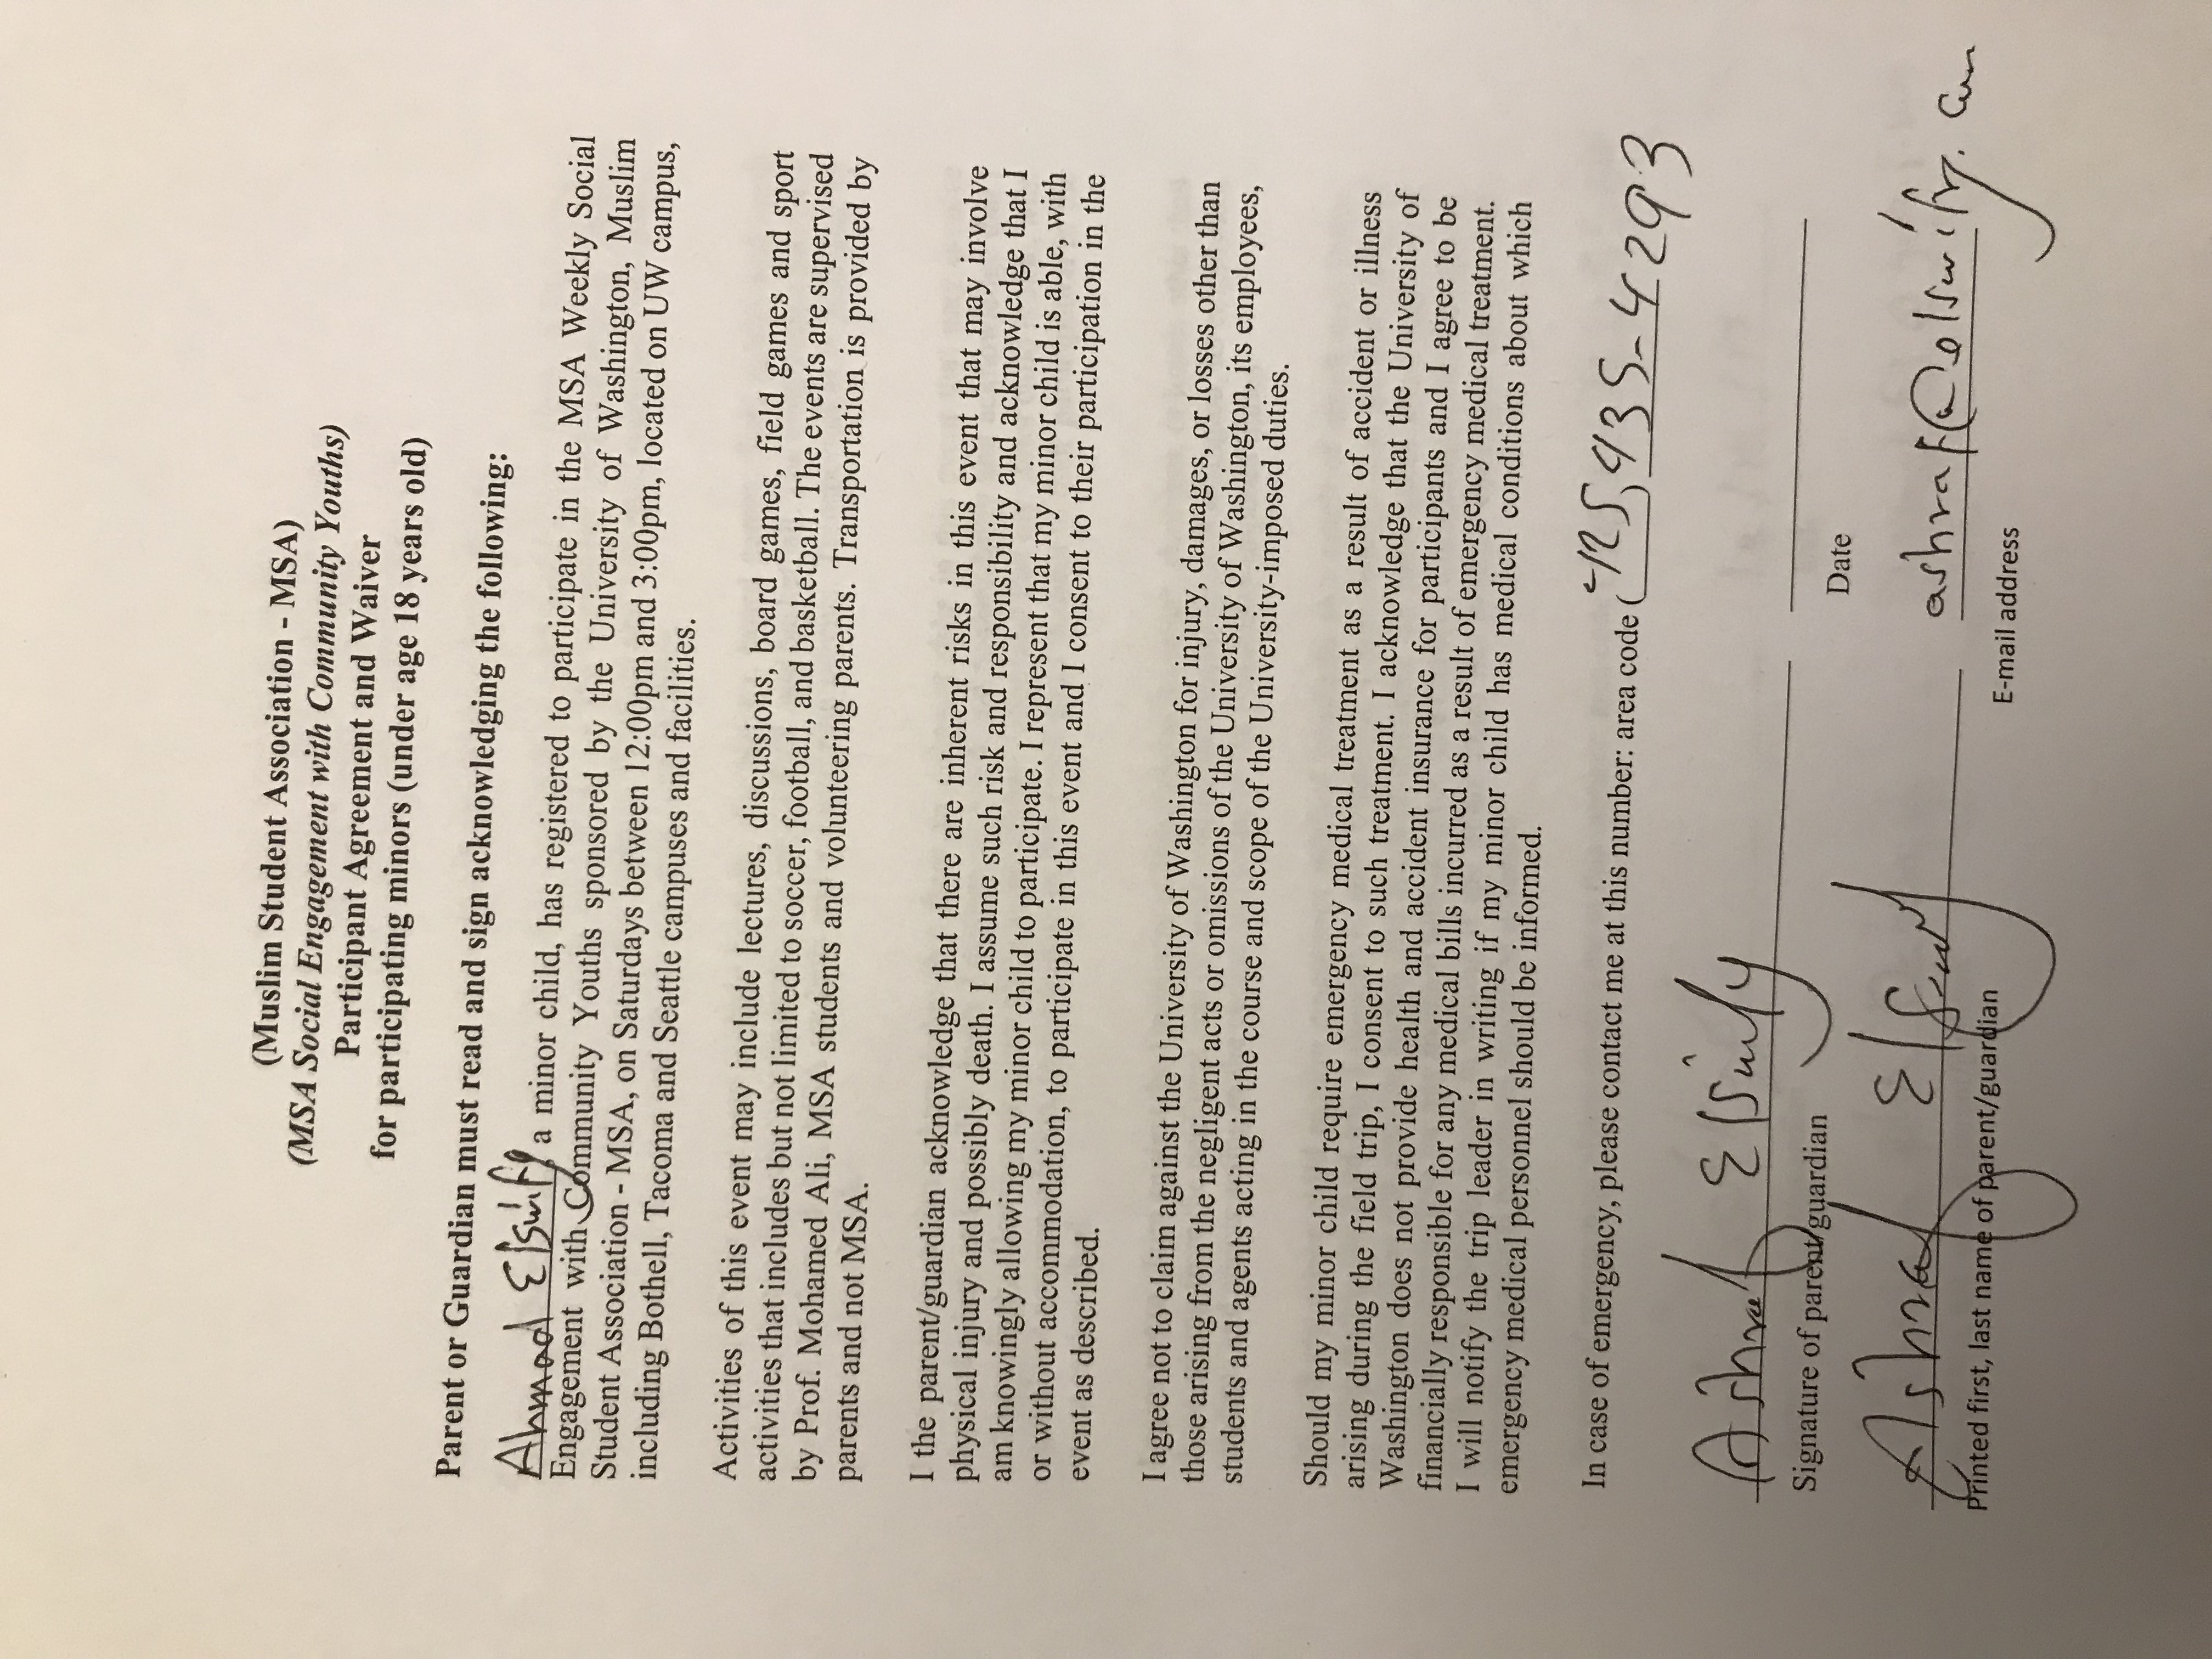 (Muslim Student Association - MSA)
(MSA Social Engagement with Community Youths)
Participant Agreement and Waiver
for participating minors (under age 18 years old)
Parent or Guardian must read and sign acknowledging the following:
Ahmad Elswify a minor child, has registered to participate in the MSA Weekly Social
Engagement with Community Youths sponsored by the University of Washington, Muslim
Student Association - MSA, on Saturdays between 12:00pm and 3:00pm, located on UW campus,
including Bothell, Tacoma and Seattle campuses and facilities.
Activities of this event may include lectures, discussions, board games, field games and sport
activities that includes but not limited to soccer, football, and basketball. The events are supervised
by Prof. Mohamed Ali, MSA students and volunteering parents. Transportation is provided by
parents and not MSA.
I the parent/guardian acknowledge that there are inherent risks in this event that may involve
physical injury and possibly death. I assume such risk and responsibility and acknowledge that I
am knowingly allowing my minor child to participate. I represent that my minor child is able, with
or without accommodation, to participate in this event and I consent to their participation in the
event as described.
I agree not to claim against the University of Washington for injury, damages, or losses other than
those arising from the negligent acts or omissions of the University of Washington, its employees,
students and agents acting in the course and scope of the University-imposed duties.
Should my minor child require emergency medical treatment as a result of accident or illness
arising during the field trip, I consent to such treatment. I acknowledge that the University of
Washington does not provide health and accident insurance for participants and I agree to be
financially responsible for any medical bills incurred as a result of emergency medical treatment.
I will notify the trip leader in writing if my minor child has medical conditions about which
emergency medical personnel should be informed.
In case of emergency, please contact me at this number: area code (425) 435-4293
Ashraf Elswify
Signature of parent/guardian
Date
Ashraf Elswify ashraf@elswify.com
Printed first, last name of parent/guardian E-mail address